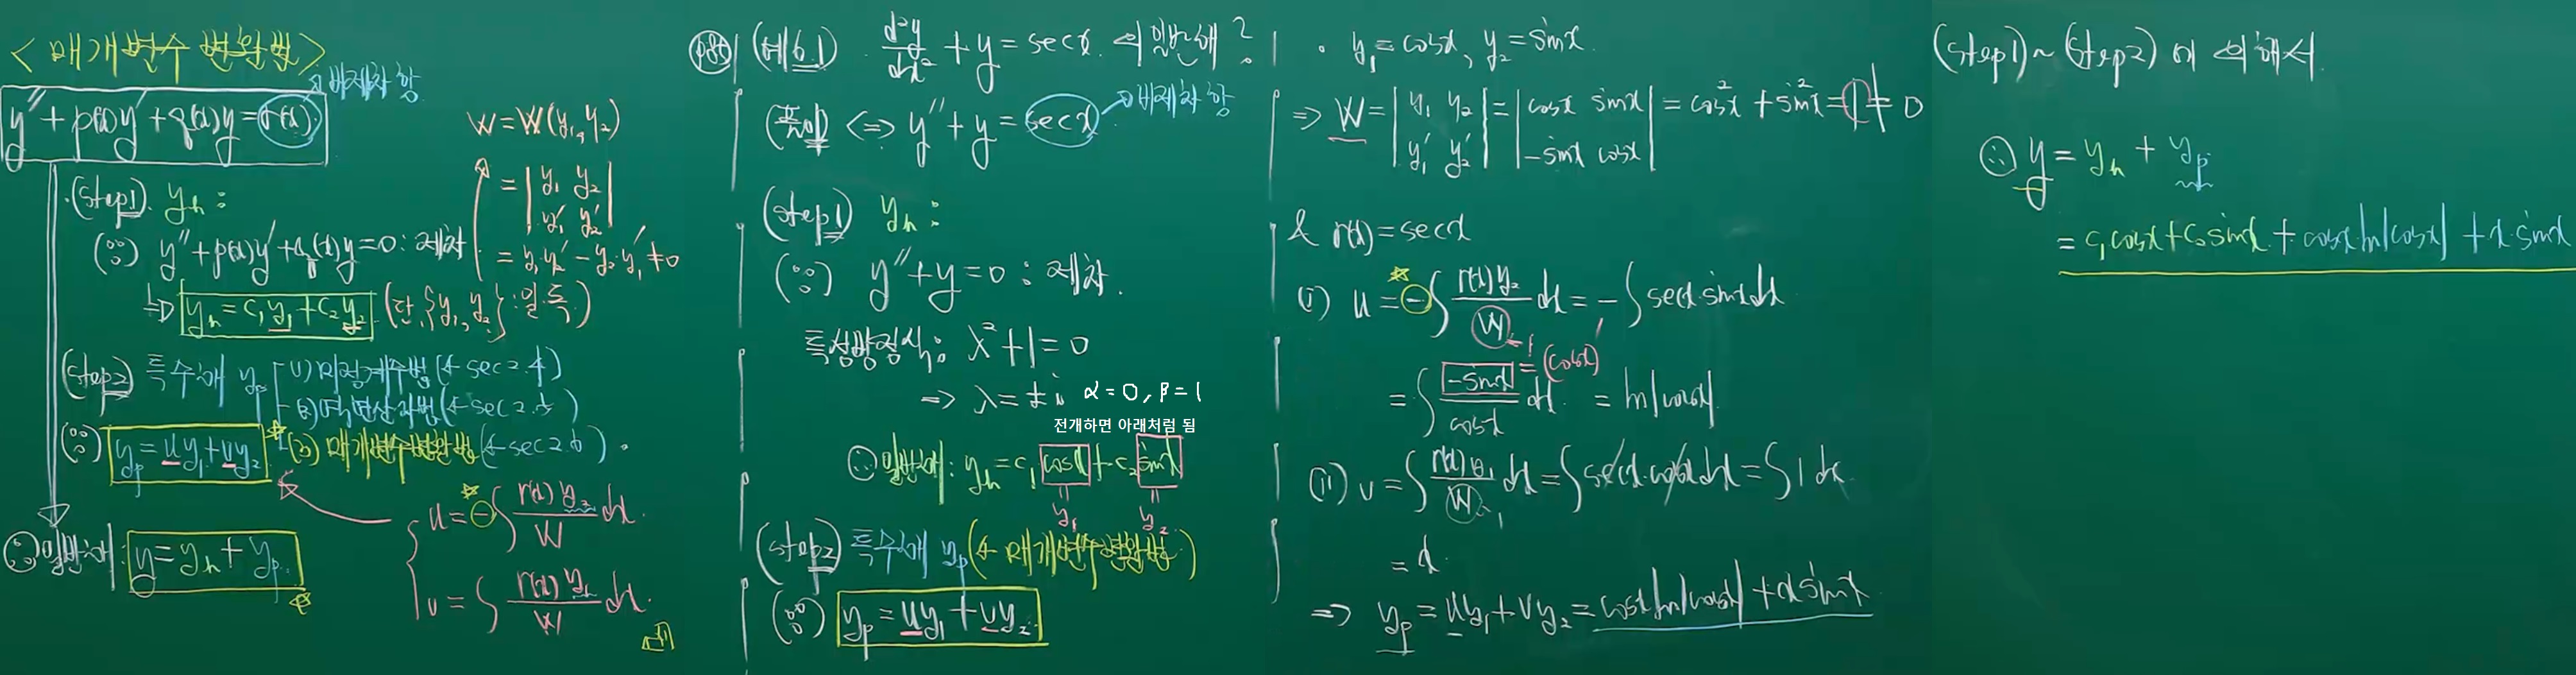 <매개변수 변환법>
y'' + p(x)y' + q(x)y = r(x) → 비제차 항
(Step1). y_h :
(∵) y'' + p(x)y' + q(x)y = 0 : 제차
↳ y_h = c₁y₁ + c₂y₂ (단, {y₁, y₂} : 일.독.)
W = W(y₁, y₂)
= | y₁ y₂ |
| y₁' y₂' |
= y₁·y₂' − y₂·y₁' ≠ 0
(Step2) 특수해 y_p
(1) 미정계수법 (← sec 2.4)
(2) 역연산자법 (← sec 2.5)
★(3) 매개변수변환법 (← sec 2.6).
(∵) y_p = uy₁ + vy₂
★
u = ⊖∫ r(x) y₂ / W dx.
v = ∫ r(x) y₁ / W dx.
∴ 일반해 : y = y_h + y_p
p85 (예6.1) . d²y/dx² + y = secx. 의 일반해?
(풀이) <=> y'' + y = secx → 비제차 항
(Step1) y_h :
(∵) y'' + y = 0 : 제차.
특성방정식 : λ² + 1 = 0
=> λ = ±i α = 0, β = 1
전개하면 아래처럼 됨
∴ 일반해 : y_h = c₁ cosx + c₂ sinx
y₁ y₂
(Step2) 특수해 y_p (← 매개변수변환법)
(∵) y_p = uy₁ + vy₂.
· y₁ = cosx, y₂ = sinx.
=> W = | y₁ y₂ | = | cosx sinx | = cos²x + sin²x = 1 ≠ 0
| y₁' y₂' | | −sinx cosx |
& r(x) = secx
(i) u = ⊖∫ r(x)y₂ / W dx = −∫ secx·sinx dx
= ∫ −sinx / cosx dx = ln|cosx|
= (cosx)'
(ii) v = ∫ r(x)y₁ / W dx = ∫ secx·cosx dx = ∫ 1 dx
= x.
=> y_p = uy₁ + vy₂ = cosx ln|cosx| + x sinx
(Step1) ~ (Step2) 에 의해서.
∴ y = y_h + y_p
= c₁cosx + c₂sinx + cosx·ln|cosx| + x·sinx